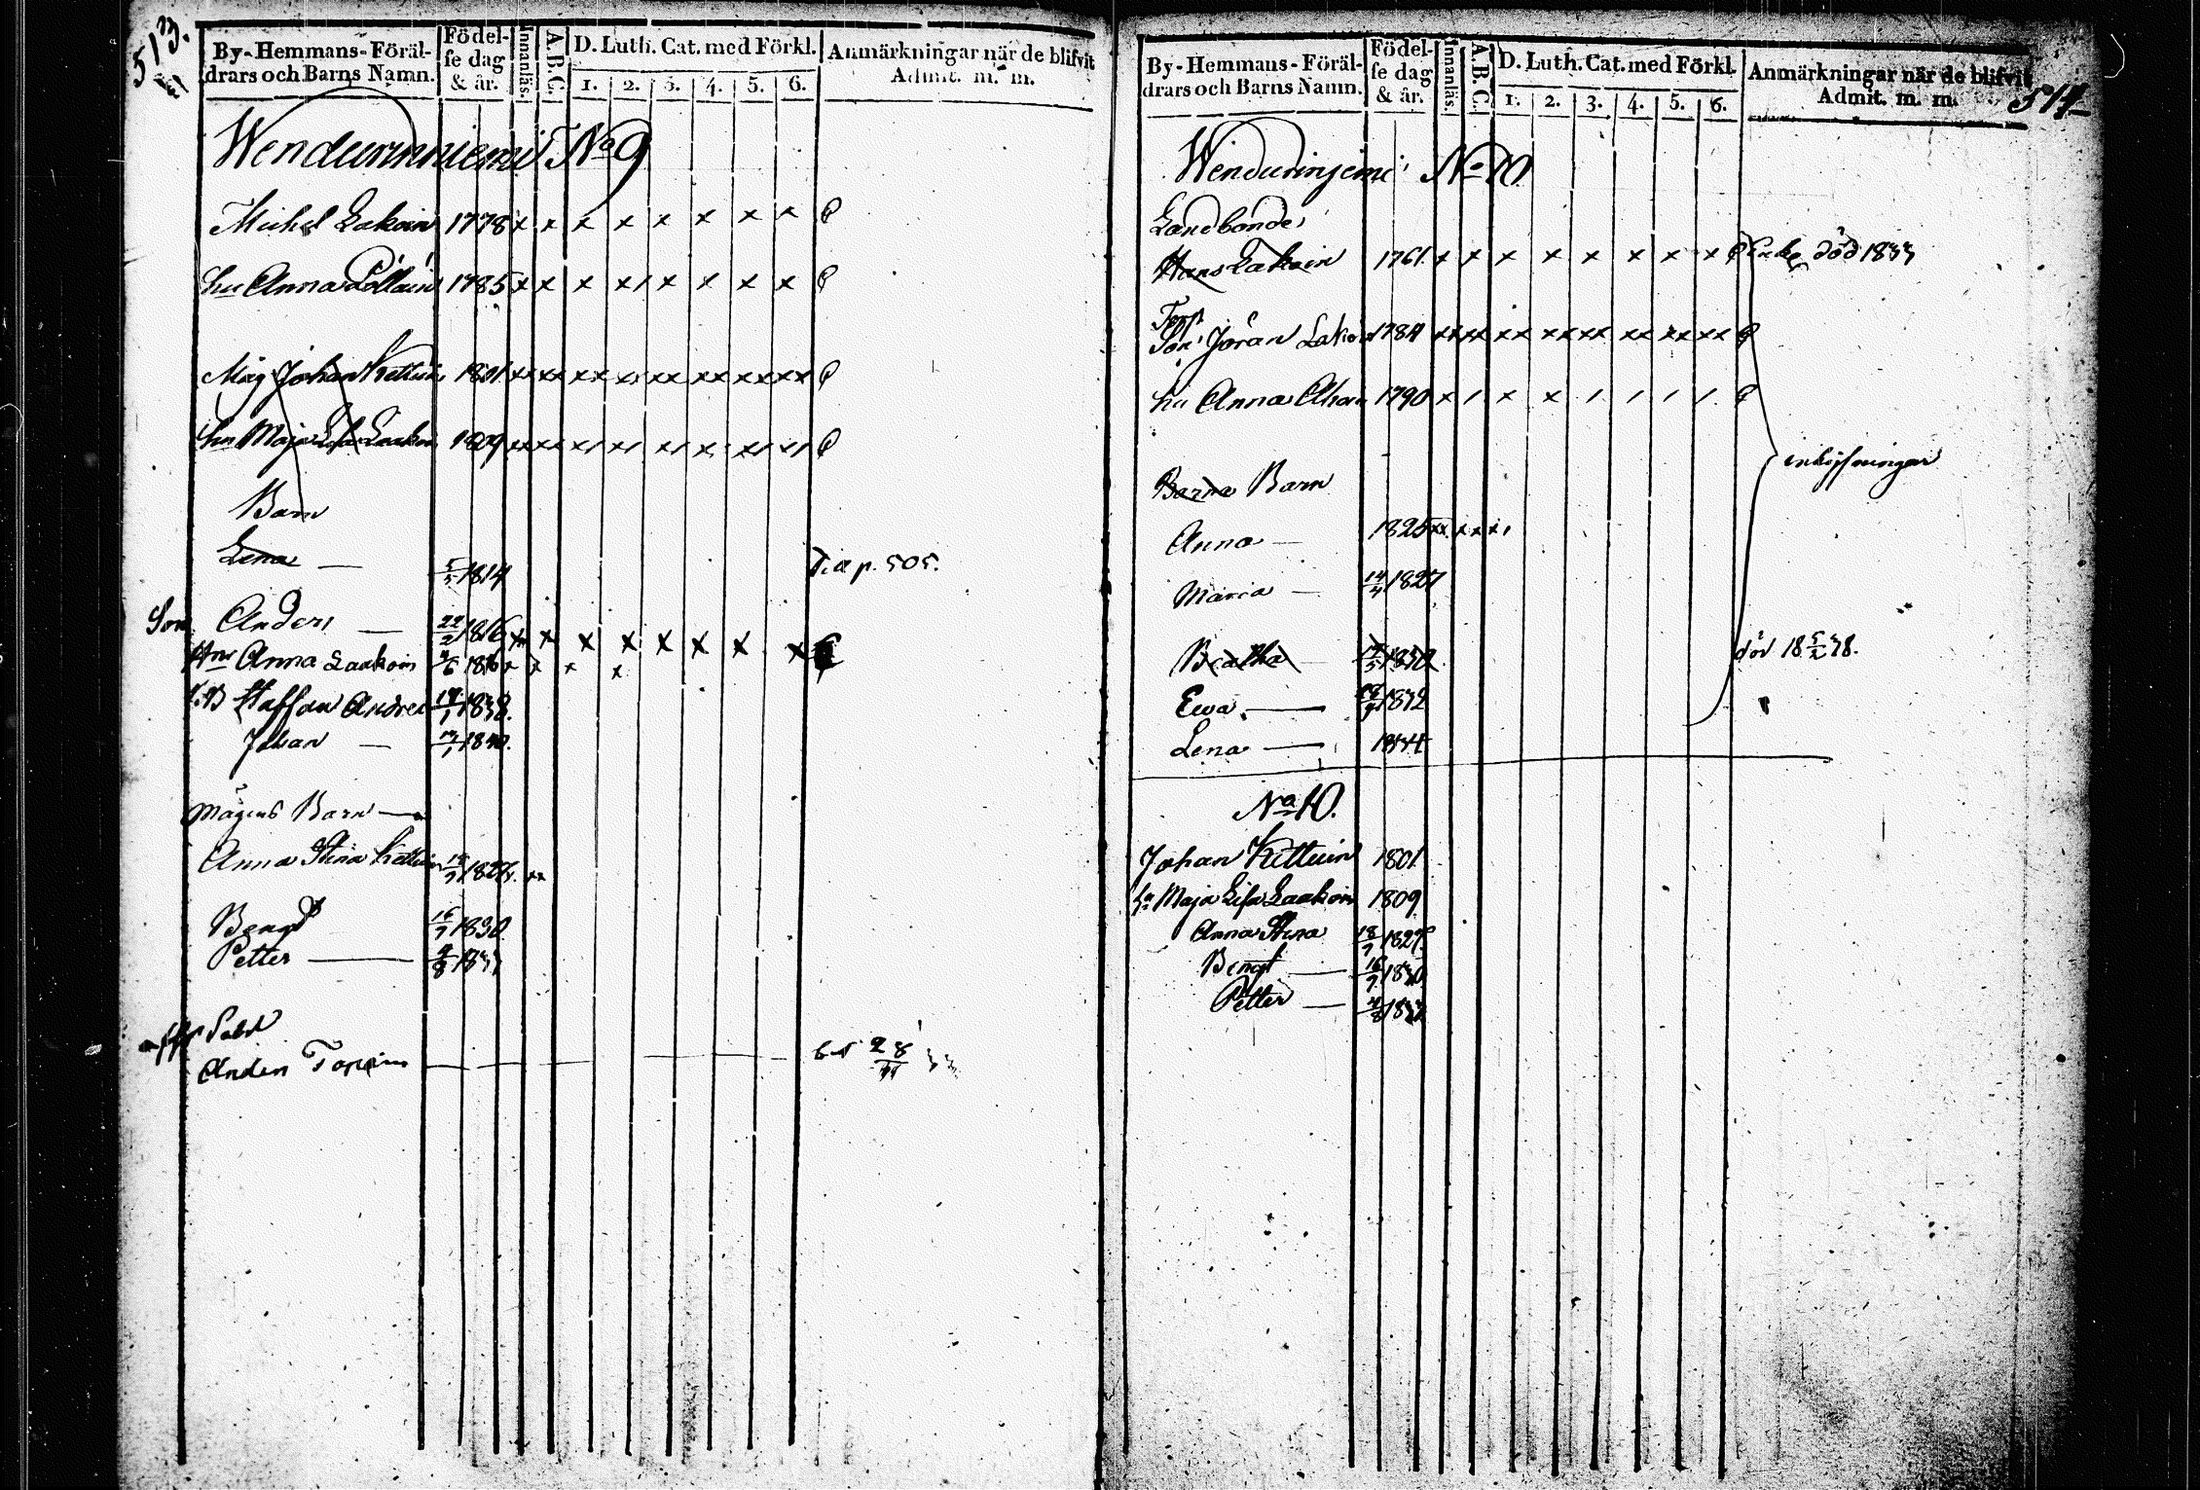 513.
By-Hemmans-Föräl-
drars och Barns Namn.
Födel-
se dag
& år.
Innanläs.
A.B.C.
D. Luth. Cat. med Förkl.
1. 2. 3. 4. 5. 6.
Anmärkningar när de blifvit
Admit. m. m.
Wendurinniemi No 9
Michel Lakoin 1778 x x x x x x x x
hu Anna Pöllöin 1785 x x x x x x x x
Måg Johan Kettuin 1801 xx xx xx xx xx xx xx xx
hu Maja Lisa Laakoin 1809
Barn
Lena — 1814 p. 505.
Son Anders — 22/2 1816 x x x x x x x x
Hu Anna Laakoin 1816 x x x x
Staffan Andrea 1838.
Johan — 1840.
Mågens Barn —
Anna Stina Kettuin 18/7 1827. xx
Bengt 16/7 1830
Petter — 4/8 1833
Sold
Anders
28
By-Hemmans-Föräl-
drars och Barns Namn.
Födel-
se dag
& år.
Innanläs.
A.B.C.
D. Luth. Cat. med Förkl.
1. 2. 3. 4. 5. 6.
Anmärkningar när de blifvit
Admit. m. m.
514
Wendurinjemi No 10
Landbonde
Hans Lakoin 1761 x x x x x x x x Enkl. död 1833
Son Jöran Lakoin 1784 xx xx xx xx xx xx xx xx
hu Anna 1790 x / x x / / / /
inhysningar
Barna Barn
Anna — 1825 xx
Maria — 14/4 1827
Beatha — 1830 död 18 5/2 38.
Ewa — 1832
Lena —
No 10.
Johan Kettuin 1801
hu Maja Lisa Laakoin 1809
Anna Stina 18/7 1827.
Bengt — 16/7 1830
Petter — 4/8 1833